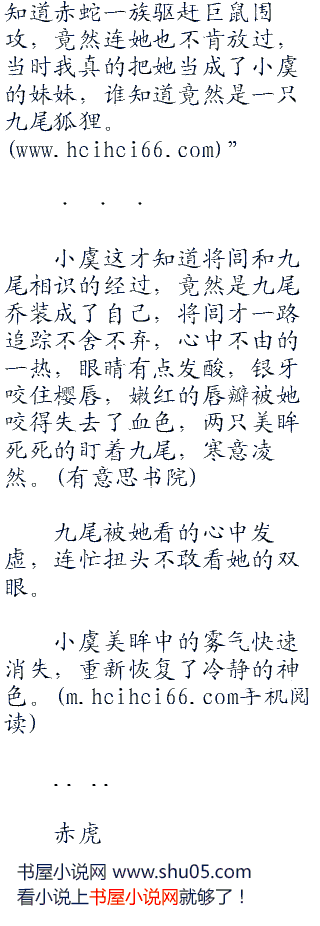 知道赤蛇一族驱赶巨鼠围
攻，竟然连她也不肯放过，
当时我真的把她当成了小虞
的妹妹，谁知道竟然是一只
九尾狐狸。
(www.hcihci66.com)”
. . .
小虞这才知道将闾和九
尾相识的经过，竟然是九尾
乔装成了自己，将闾才一路
追踪不舍不弃，心中不由的
一热，眼睛有点发酸，银牙
咬住樱唇，嫩红的唇瓣被她
咬得失去了血色，两只美眸
死死的盯着九尾，寒意凌
然。(有意思书院)
九尾被她看的心中发
虚，连忙扭头不敢看她的双
眼。
小虞美眸中的雾气快速
消失，重新恢复了冷静的神
色。(m.hcihci66.com手机阅
读)
.. ..
赤虎
书屋小说网 www.shu05.com
看小说上书屋小说网就够了！